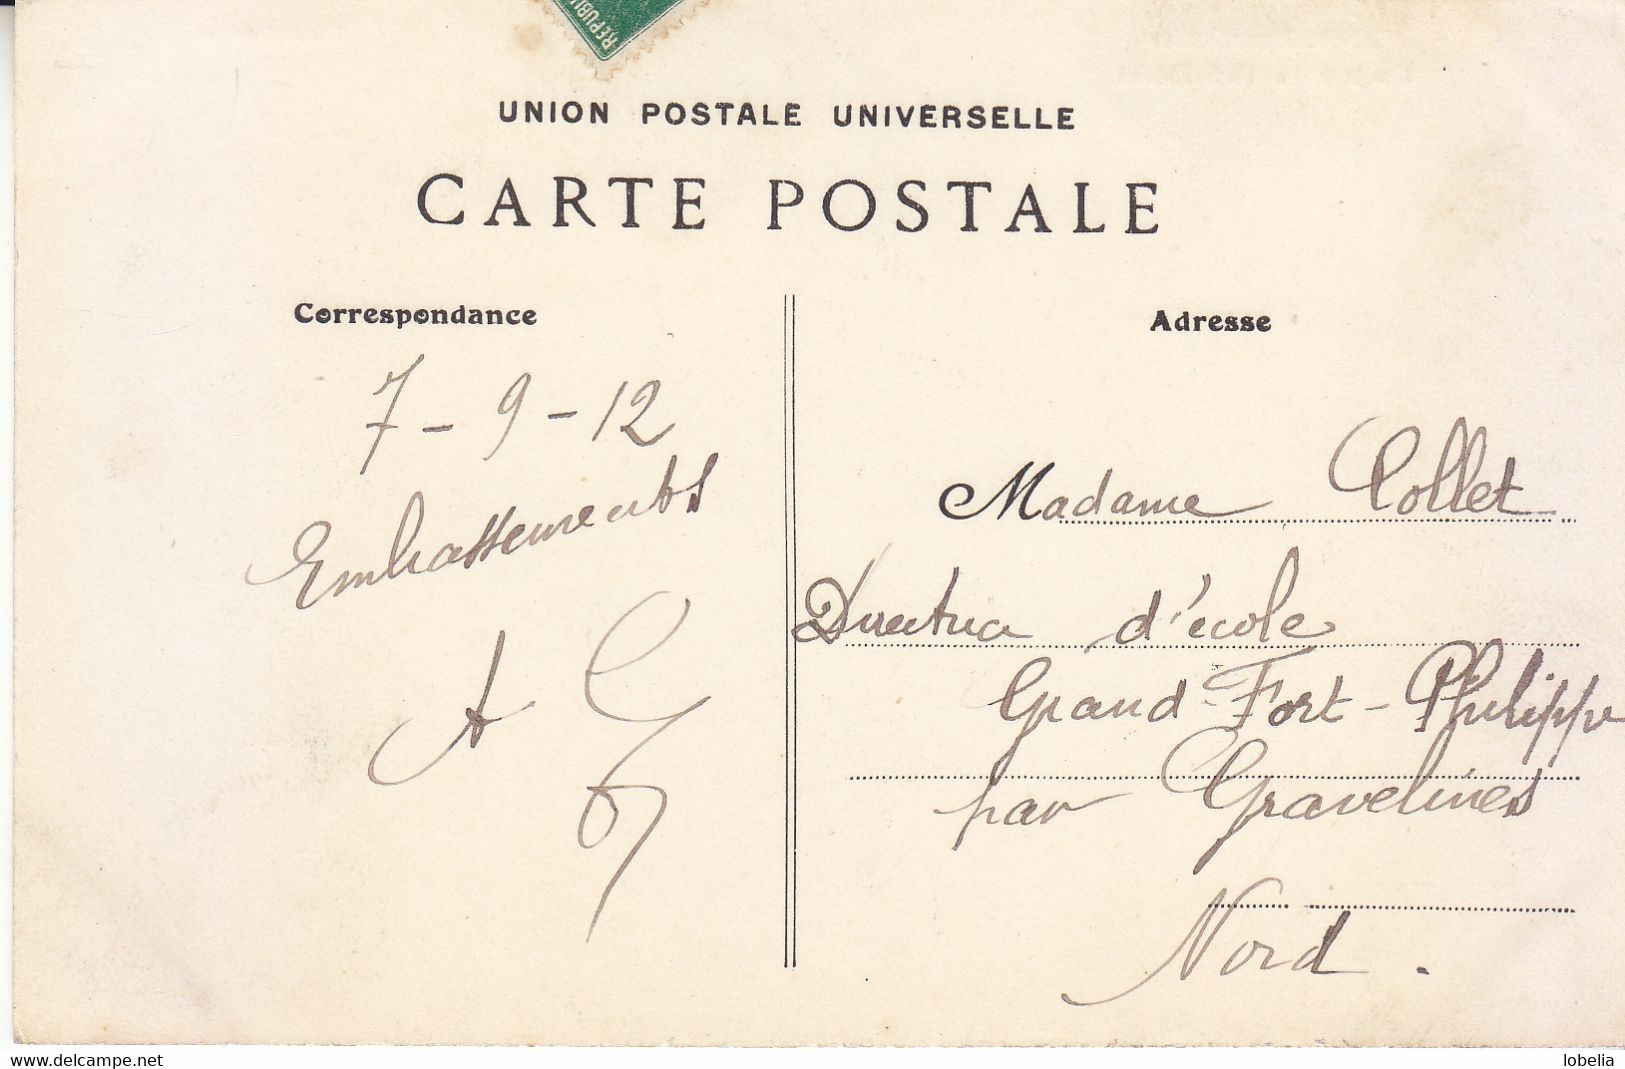 REPUBLI
UNION POSTALE UNIVERSELLE
CARTE POSTALE
Correspondance
7-9-12
Embrassements
A
Adresse
Madame Collet
Directrice d'école
Grand-Fort-Philippe
par Gravelines
Nord.
www.delcampe.net
lobelia